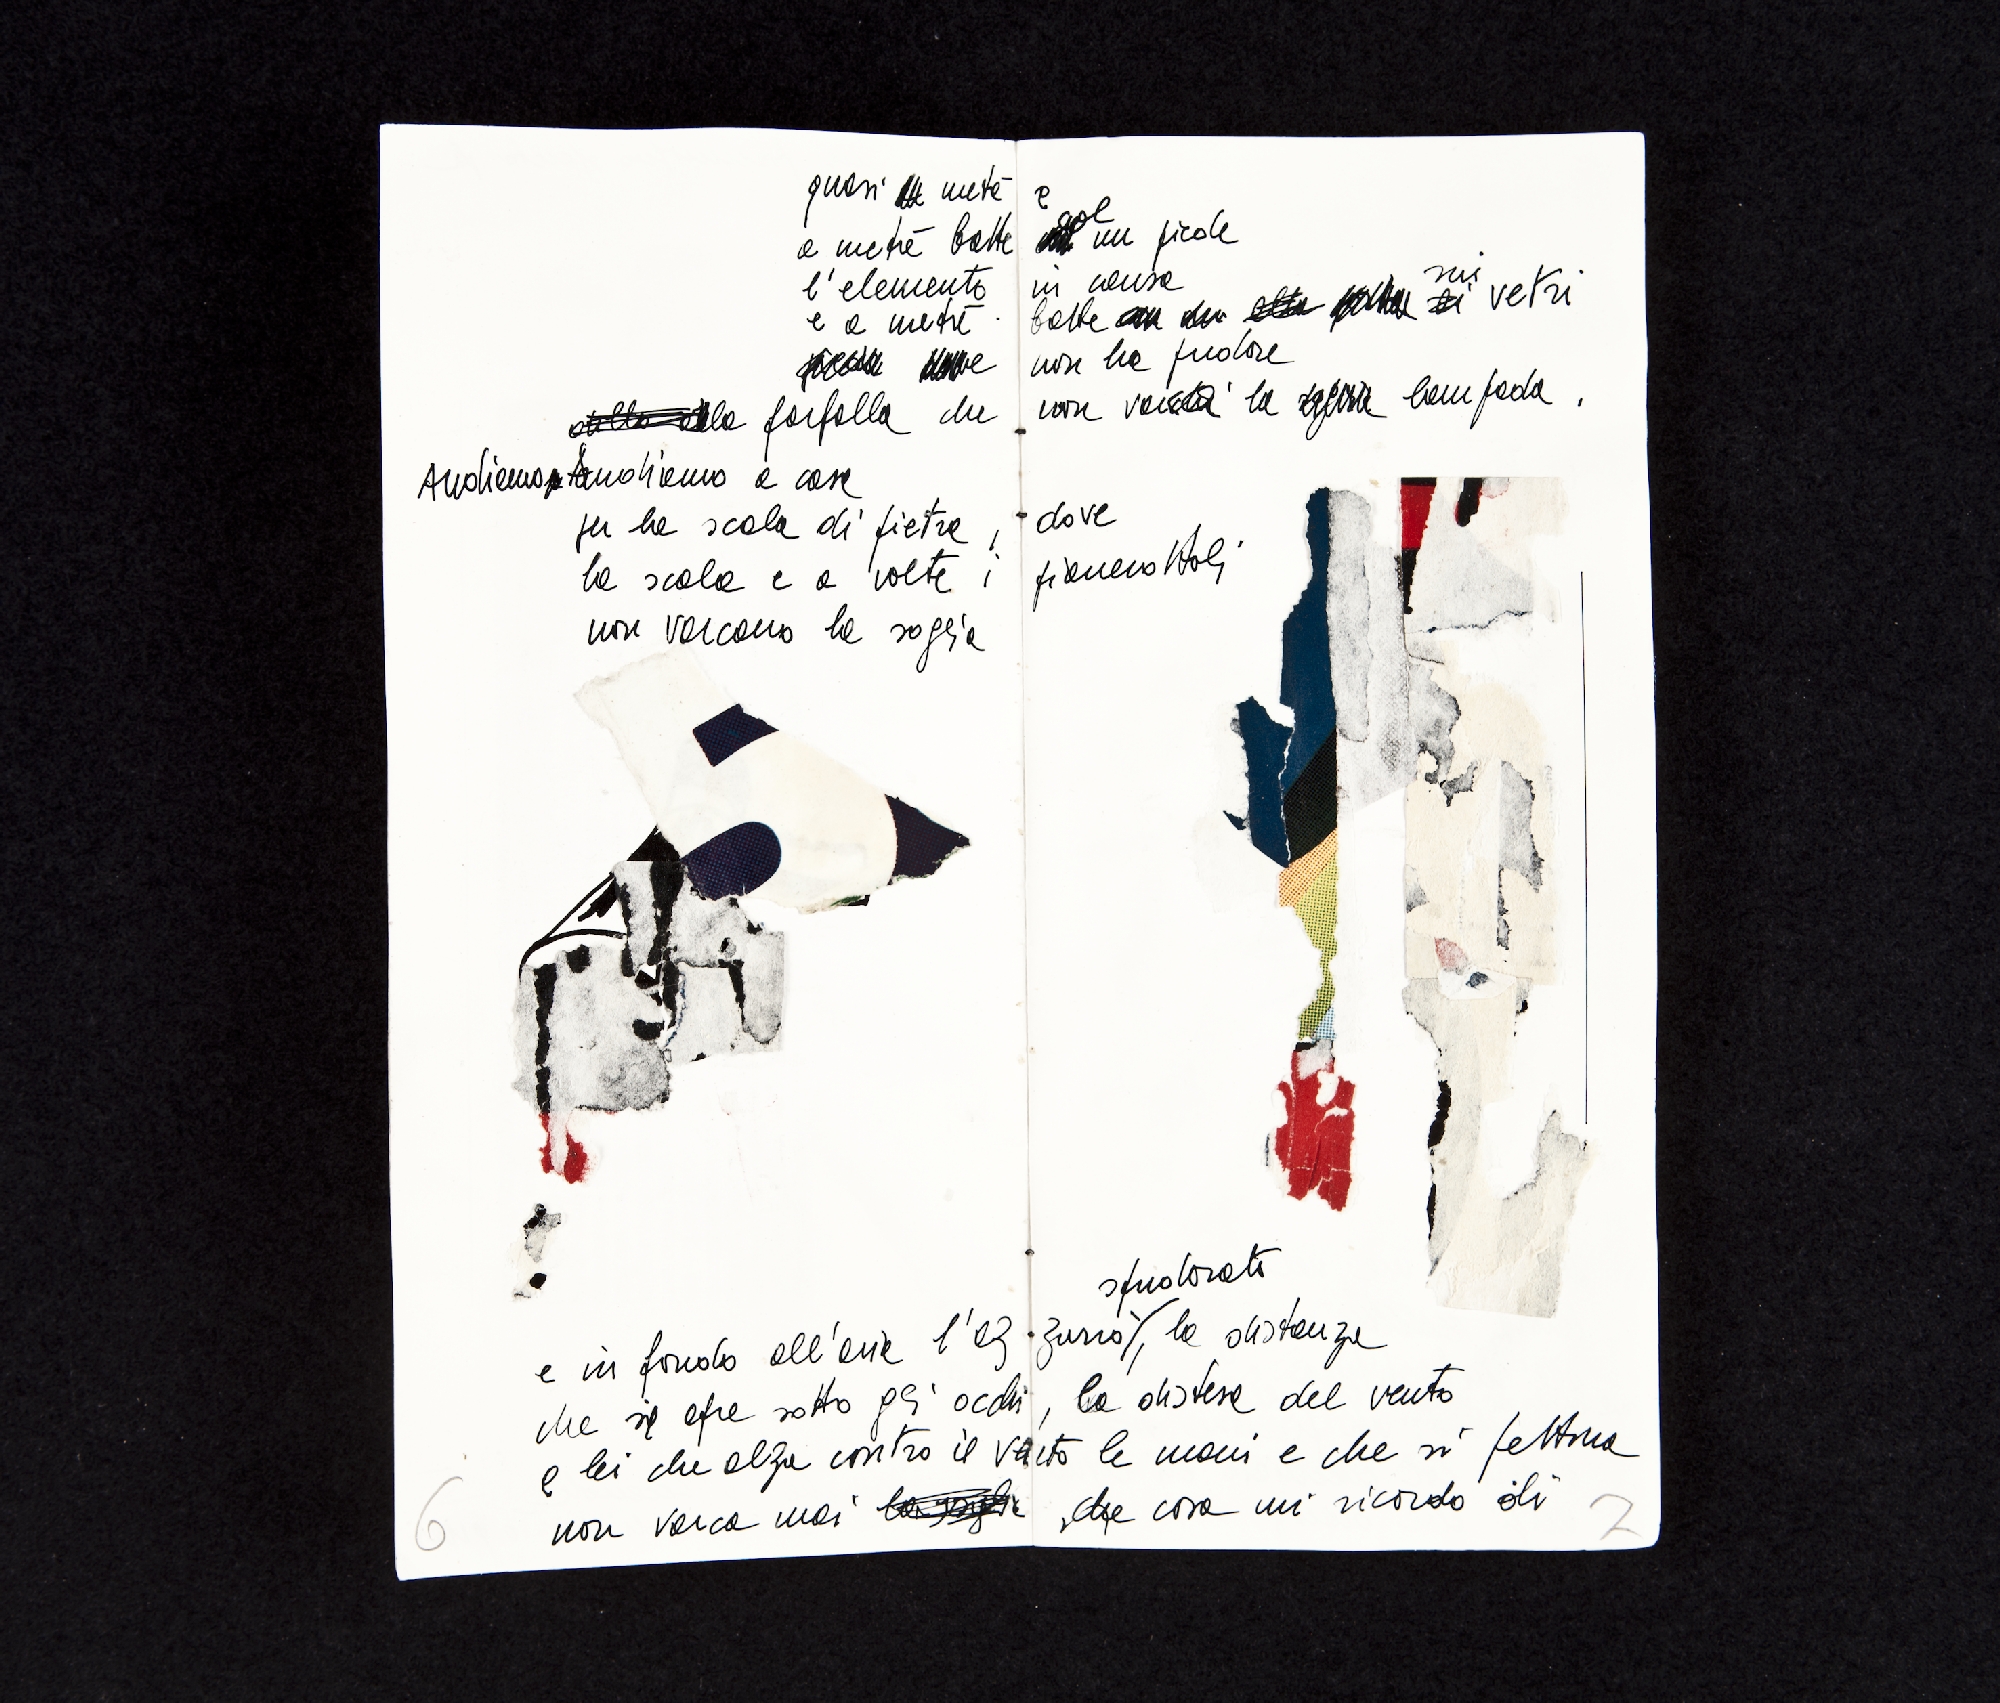 quasi metà e
a metà batte sol un picole
l'elemento in causa
e a metà batte sui vetri
non ha pudore
la farfalla che non varca la lampada.
Andiamo andiamo a casa
per la scala di pietra, dove
la scala e a volte i pianerottoli
non varcano la soglia
spudorato
e in fondo all'aria l'azzurro, la distanza
che si apre sotto gli occhi, la distesa del vento
e lei che alza contro il vento le mani e che si pettina
non varca mai che cosa mi ricordo di
6 7